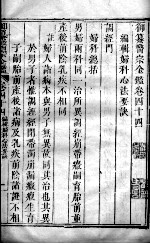 御纂醫宗金鑑卷四十四
編輯婦科心法要訣
調經門
婦科總括
男婦兩科同一治所異調經崩帶癥嗣育胎前並
產後前陰乳疾不相同
註婦人諸病本與男子無異故同其治也其異
於男子者惟調經經閉帶濁崩漏癥瘕生育
子嗣胎前產後諸病及乳疾前陰諸證不相